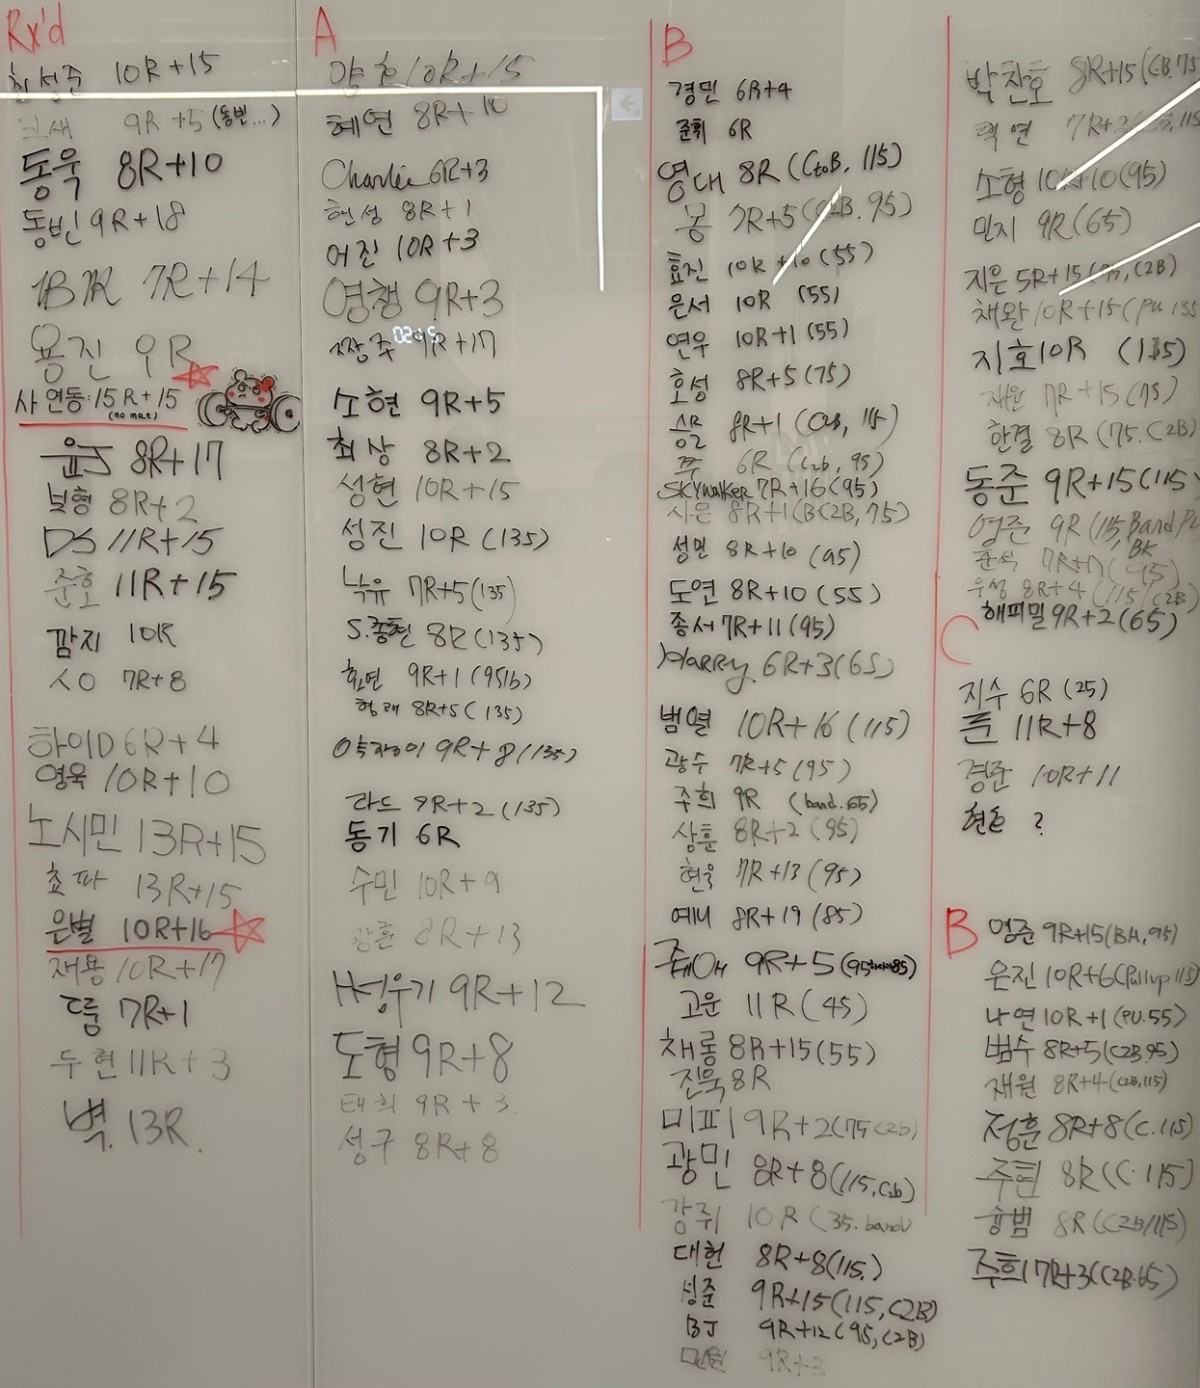 Rx'd
최성준 10R+15
크새 9R+5 (동빈...)
동욱 8R+10
동빈 9R+18
7R+14
용진 9R
사연동: 15R+15
(no mat)
윤J 8R+17
보형 8R+2
DS 11R+15
준호 11R+15
깜지 10R
ㅅㅇ 7R+8
하이D 6R+4
영욱 10R+10
노시민 13R+15
쵸파 13R+15
은별 10R+16
재용 10R+17
뚱 7R+1
두현 11R+3
벽. 13R.
A
약초 10R+15
혜연 8R+10
Charlie 6R+3
현성 8R+1
어진 10R+3
영챙 9R+3
짱주 9R+17
소현 9R+5
최상 8R+2
성현 10R+15
성진 10R (135)
녹유 7R+5 (135)
S.종현 8R (135)
9R+1 (95lb)
형래 8R+5 (135)
약쟁이 9R+8 (135)
라드 9R+2 (135)
동기 6R
수민 10R+9
광훈 8R+13
H성우기 9R+12
도형 9R+8
태희 9R+3.
성구 8R+8
B
경민 6R+4
준휘 6R
영대 8R (CtoB, 115)
몽 7R+5 (C2B. 95)
효진 10R+10 (55)
은서 10R (55)
연우 10R+1 (55)
호성 8R+5 (75)
8R+1 (C2B, 115)
쭈 6R (C2b, 95)
SKYWALKER 7R+16 (95)
시은 8R+1 (C2B, 75)
성민 8R+10 (95)
도연 8R+10 (55)
종서 7R+11 (95)
HARRY 6R+3 (65)
범열 10R+16 (115)
광수 7R+5 (95)
주희 9R (band. 65)
상훈 8R+2 (95)
현욱 7R+13 (95)
예니 8R+19 (85)
9R+5
고운 11R (45)
채롱 8R+15 (55)
진욱 8R
미피 9R+2 (75, C2b)
광민 8R+8 (115, C2b)
강쥐 10R (35. band)
대헌 8R+8 (115.)
성준 9R+15 (115, C2B)
BJ 9R+12 (95, C2B)
9R+3
박찬호 8R+15 (CB. 75
택연 7R+2
소형 10R+10 (95)
민지 9R (65)
지은 5R+15 (C2B)
채완 10R+15 (PU 135
지호 10R (115)
재완 7R+15 (75)
한결 8R (75. C2B)
동준 9R+15 (115)
영준 9R (115, Band, PU
BK
준석 7R+17 (95)
우성 8R+4 (115, C2B)
해피밀 9R+2 (65)
C
지수 6R (25)
튼 11R+8
경준 10R+11
현승 ?
B
영준 9R+15 (BH, 95)
은진 10R+6 (Pullup 115)
나연 10R+1 (PU. 55)
범수 8R+5 (C2B. 95)
재원 8R+4 (C2B, 115)
정훈 8R+8 (C. 115)
주현 8R (C. 115)
윤범 8R (C2b/115)
주희 17R+3 (C2B. 65)